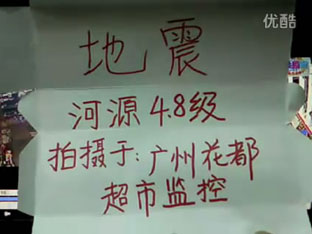 优酷
地震
河源4.8级
拍摄于:广州花都
超市监控